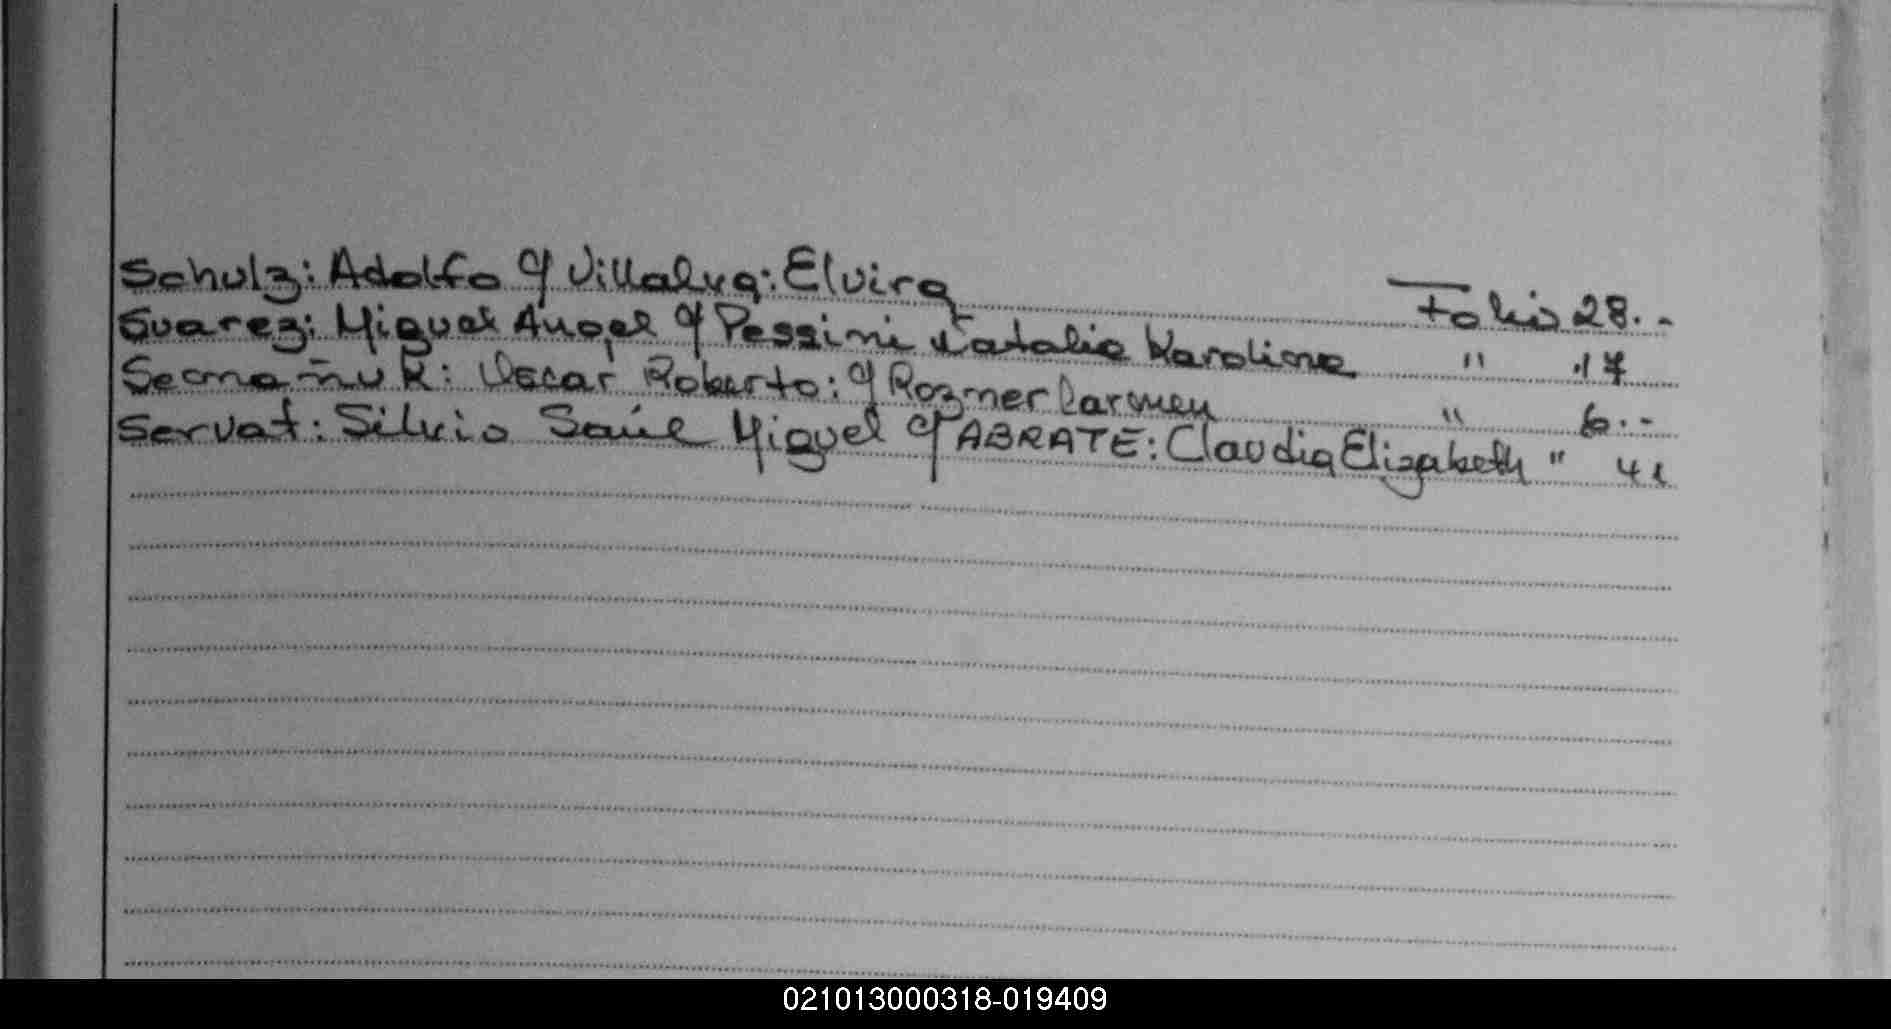 Schulz: Adolfo c/ Villalva: Elvira Folio 28.-
Suarez: Miguel Angel c/ Pessini Natalia Karolina " 17
Oscar Roberto: c/ Rozner Carmen " 6.-
Servat: Silvio Saúl Miguel c/ ABRATE: Claudia Elizabeth " 41
021013000318-019409